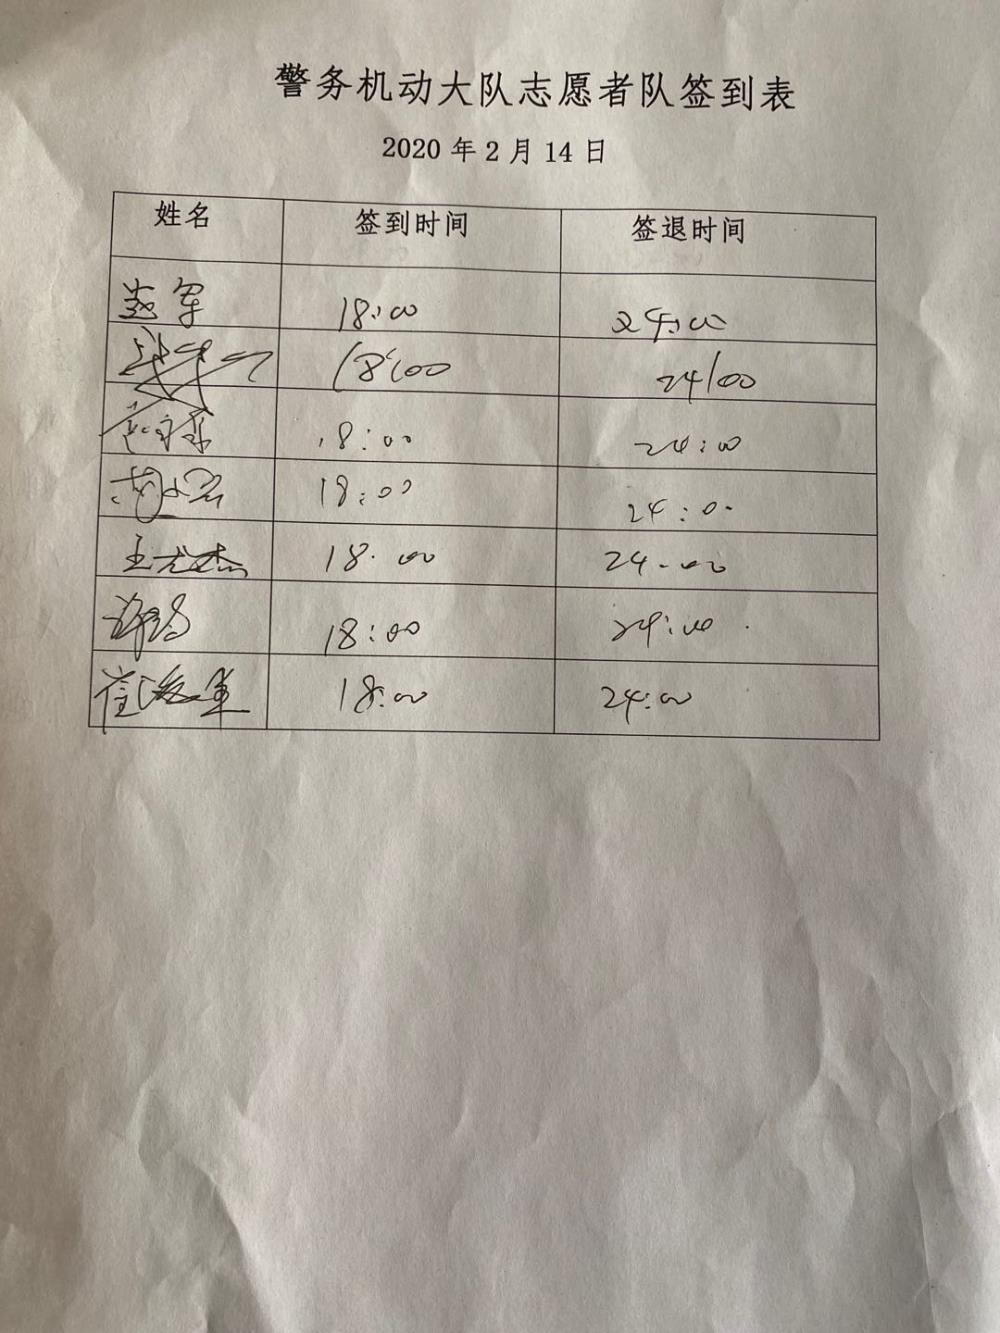 警务机动大队志愿者队签到表
2020 年 2 月 14 日
姓名 签到时间 签退时间
赵军 18:00 24:00
18:00 24:00
18:00 24:00
18:00 24:00
王尤杰 18:00 24:00
18:00 24:00
18:00 24:00